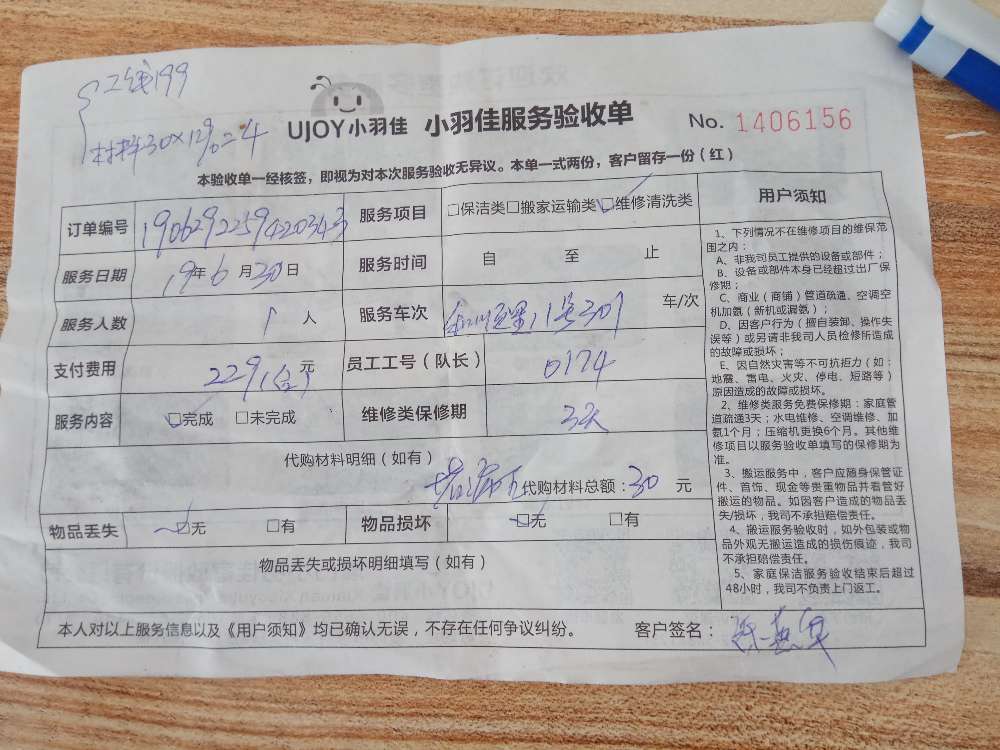 工钱199
材料30×12%=4
UJOY小羽佳 小羽佳服务验收单 No. 1406156
本验收单一经核签，即视为对本次服务验收无异议。本单一式两份，客户留存一份（红）
订单编号 1906292259420343 服务项目 □保洁类□搬家运输类□维修清洗类
服务日期 19年6月30日 服务时间 自 至 止
服务人数 1人 服务车次 11号301 车/次
支付费用 229 元 员工工号（队长） 0174
服务内容 □完成 □未完成 维修类保修期 3天
代购材料明细（如有）
代购材料总额：30 元
物品丢失 □无 □有 物品损坏 □无 □有
物品丢失或损坏明细填写（如有）
本人对以上服务信息以及《用户须知》均已确认无误，不存在任何争议纠纷。 客户签名：
用户须知
1、下列情况不在维修项目的维保范
围之内：
A、非我司员工提供的设备或部件；
B、设备或部件本身已经超过出厂保
修期；
C、商业（商铺）管道疏通、空调空
机加氨（新机或漏氨）；
D、因客户行为（擅自装卸、操作失
误等）或另请非我司人员检修所造成
的故障或损坏；
E、因自然灾害等不可抗拒力（如：
地震、雷电、火灾、停电、短路等）
原因造成的故障或损坏。
2、维修类服务免费保修期：家庭管
道疏通3天；水电维修、空调维修、加
氨1个月；压缩机更换6个月。其他维
修项目以服务验收单填写的保修期为
准。
3、搬运服务中，客户应随身保管证
件、首饰、现金等贵重物品并看管好
搬运的物品。如因客户造成的物品丢
失/损坏，我司不承担赔偿责任。
4、搬运服务验收时，如外包装或物
品外观无搬运造成的损伤痕迹，我司
不承担赔偿责任。
5、家庭保洁服务验收结束后超过
48小时，我司不负责上门返工。